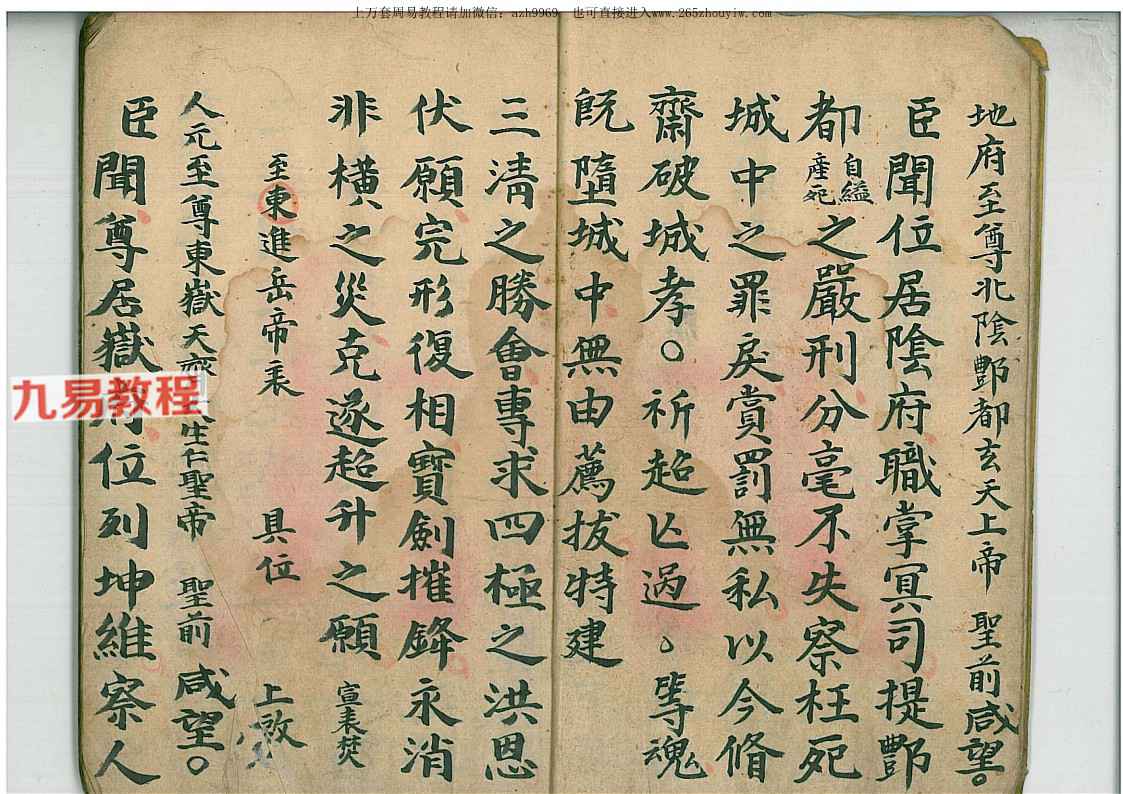 上万套周易教程请加微信：azh9969 也可直接进入www.265zhouyiw.com
地府至尊北陰酆都玄天上帝 聖前咸望。
臣聞位居陰府職掌冥司提酆
都自縊產死之嚴刑分毫不失察枉死
城中之罪戾賞罰無私以今脩
齋破城孝〇祈超亡過〇等魂
旣墮城中無由薦拔特建
三清之勝會專求四極之洪恩
伏願完形復相寶劍摧鋒永消
非橫之災克遂超升之願 宣表焚
至東進岳帝表 具位 上啟
人元至尊東嶽天齊 生仁聖帝 聖前咸望。
臣聞尊居嶽府位列坤維察人
九易教程